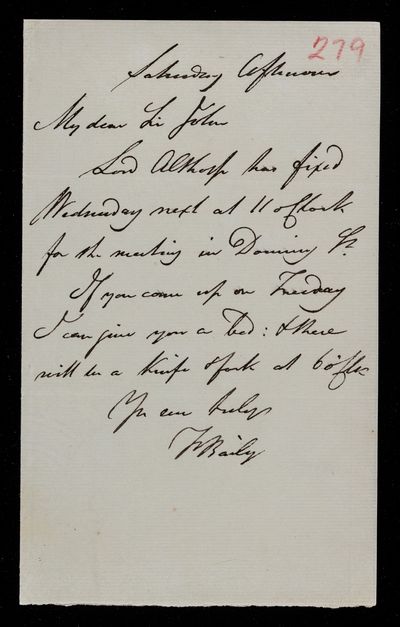 279
Saturday Afternoon
My dear Sir John
Lord Althorp has fixed
Wednesday next at 11 o'Clock
for the meeting in Downing St.
If you come up on Tuesday
I can give you a bed: & there
will be a knife & fork at 6 o'Clk
Yrs ever truly
F Baily